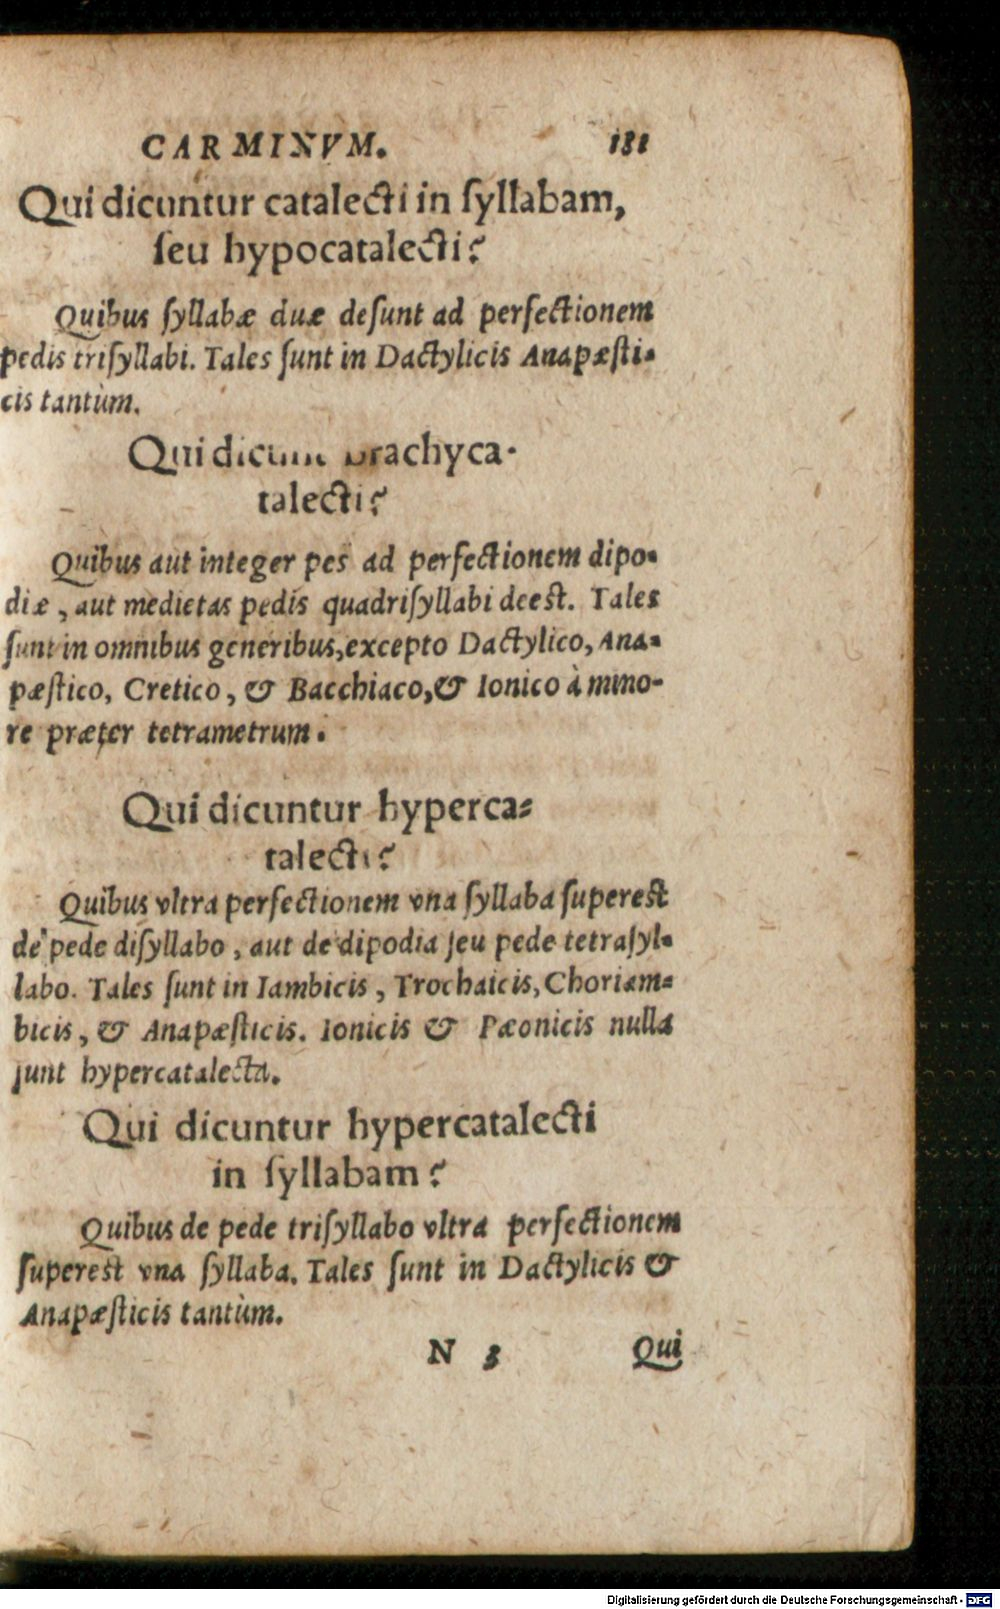 CARMINVM. 181
Qui dicuntur catalecti in ſyllabam,
ſeu hypocatalecti?
Quibus ſyllabæ duæ deſunt ad perfectionem
pedis triſyllabi. Tales ſunt in Dactylicis Anapæſti-
cis tantùm.
Qui dicunt brachyca-
talecti?
Quibus aut integer pes ad perfectionem dipo-
diæ, aut medietas pedis quadriſyllabi deeſt. Tales
ſunt in omnibus generibus, excepto Dactylico, Ana-
pæſtico, Cretico, & Bacchiaco, & Ionico à mino-
re præter tetrametrum.
Qui dicuntur hyperca-
talecti?
Quibus vltra perfectionem vna ſyllaba ſupereſt
de pede diſyllabo, aut de dipodia ſeu pede tetraſyl-
labo. Tales ſunt in Iambicis, Trochaicis, Choriam-
bicis, & Anapæſticis. Ionicis & Pæonicis nulla
ſunt hypercatalecta.
Qui dicuntur hypercatalecti
in ſyllabam?
Quibus de pede triſyllabo vltra perfectionem
ſupereſt vna ſyllaba. Tales ſunt in Dactylicis &
Anapæſticis tantùm.
N 3 Qui
Digitalisierung gefördert durch die Deutsche Forschungsgemeinschaft - DFG